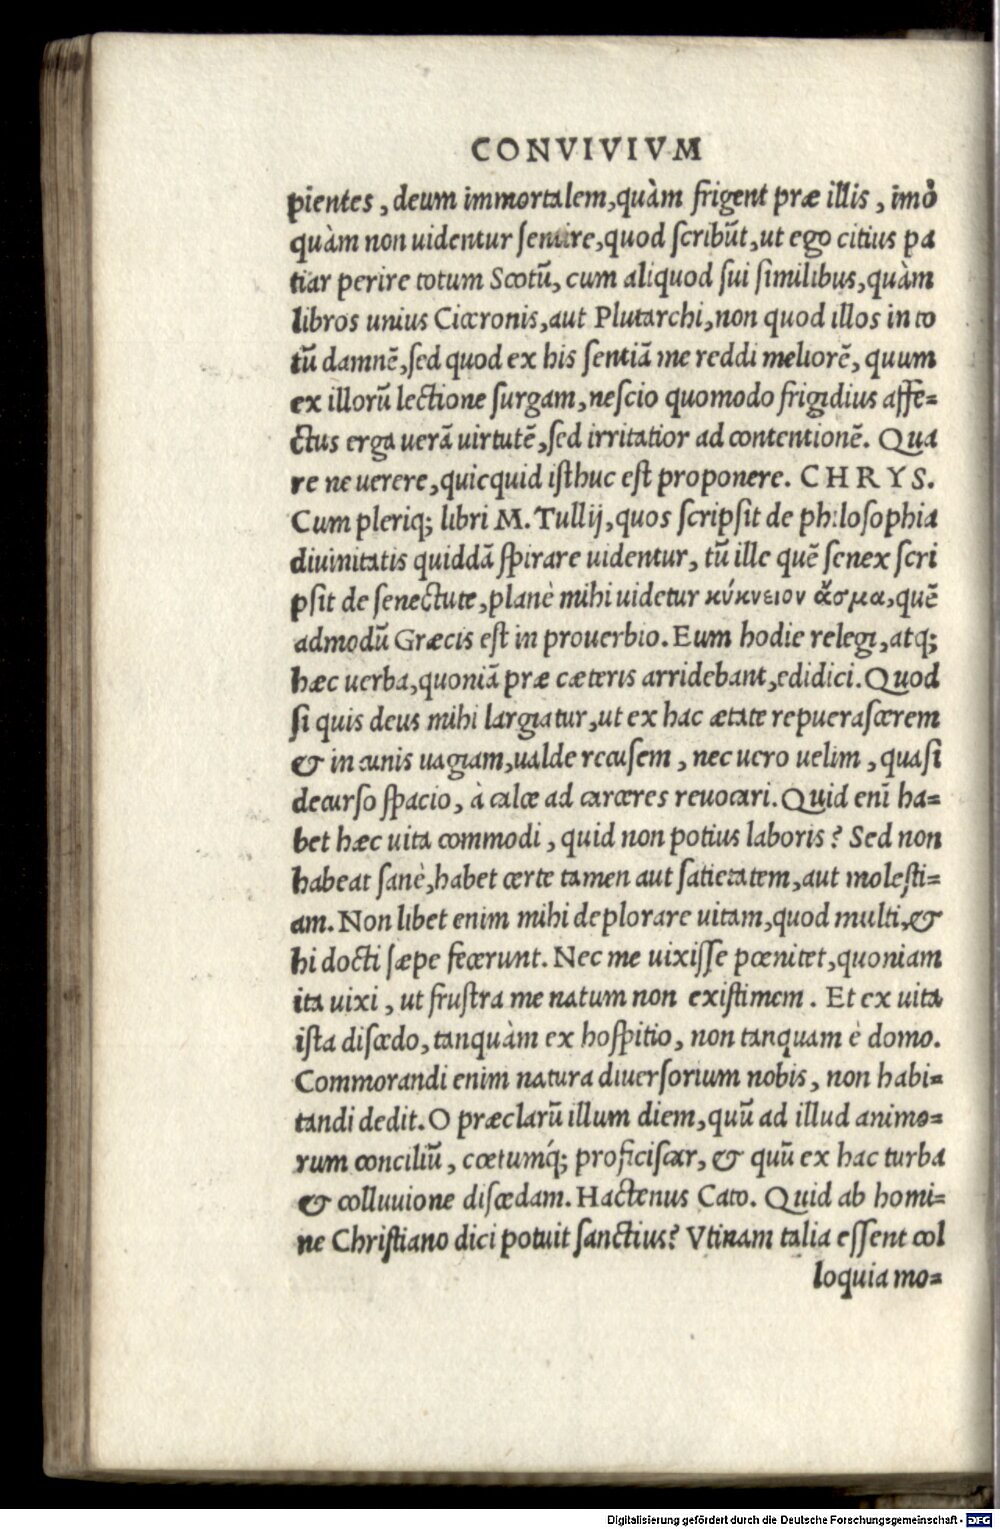 CONVIVIVM
pientes, deum immortalem, quàm frigent præ illis, imò
quàm non uidentur sentire, quod scribũt, ut ego citius pa
tiar perire totum Scotũ, cum aliquod sui similibus, quàm
libros unius Ciceronis, aut Plutarchi, non quod illos in to
tũ damnẽ, sed quod ex his sentiã me reddi meliorẽ, quum
ex illorũ lectione surgam, nescio quomodo frigidius affe=
ctus erga uerã uirtutẽ, sed irritatior ad contentionẽ. Qua
re ne uerere, quicquid isthuc est proponere. CHRYS.
Cum pleriq; libri M. Tullij, quos scripsit de philosophia
diuinitatis quiddã spirare uidentur, tũ ille quẽ senex scri
psit de senectute, planè mihi uidetur κύκνειον ᾆσμα, quẽ
admodũ Græcis est in prouerbio. Eum hodie relegi, atq;
hæc uerba, quoniã præ cæteris arridebant, edidici. Quod
si quis deus mihi largiatur, ut ex hac ætate repuerascerem
& in cunis uagiam, ualde recusem, nec uero uelim, quasi
decurso spacio, à calce ad carceres reuocari. Quid enĩ ha=
bet hæc uita commodi, quid non potius laboris? Sed non
habeat sanè, habet certe tamen aut satietatem, aut molesti=
am. Non libet enim mihi deplorare uitam, quod multi, &
hi docti sæpe fecerunt. Nec me uixisse pœnitet, quoniam
ita uixi, ut frustra me natum non existimem. Et ex uita
ista discedo, tanquàm ex hospitio, non tanquam è domo.
Commorandi enim natura diuersorium nobis, non habi=
tandi dedit. O præclarũ illum diem, quũ ad illud animo=
rum conciliũ, cœtumq́; proficiscar, & quũ ex hac turba
& colluuione discedam. Hactenus Cato. Quid ab homi=
ne Christiano dici potuit sanctius? Vtinam talia essent col
loquia mo=
Digitalisierung gefördert durch die Deutsche Forschungsgemeinschaft - DFG